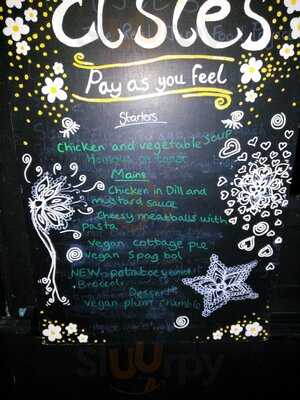 Pay as you feel
Starters
Chicken and vegetable soup
Houmous on toast
Mains
Chicken in Dill and
mustard sauce
Cheesy meatballs with
pasta
vegan cottage pie
vegan spag bol
NEW potatoes and
Broccoli
Desserts
vegan plum crumble
sluurpy